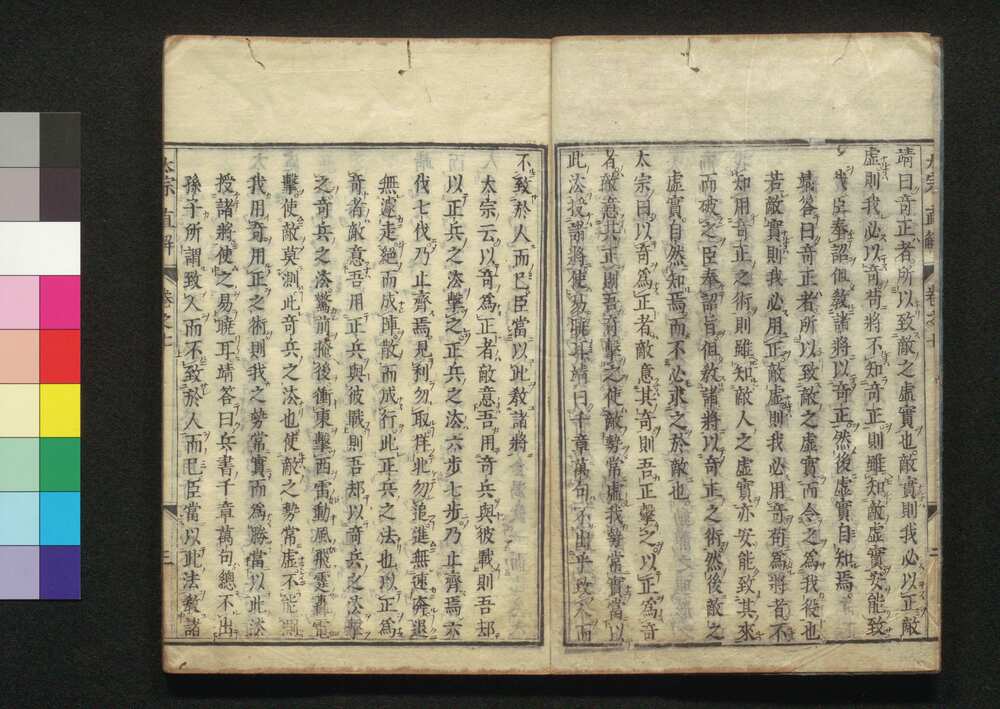 靖曰奇正者所以致敵之虛實也敵實則我必以正敵
虛則我必以奇苟將不知奇正則雖知敵虛實安能致
哉臣奉詔但教諸將以奇正然後虛實自知焉
靖答曰奇正者所以致敵之虛實而令之為我役也
若敵實則我必用正敵虛則我必用奇苟為將者不
知用奇正之術則雖知敵人之虛實亦安能致其來
而破之臣奉詔旨但教諸將以奇正之術然後敵之
虛實自然知焉而不必求之於敵也
太宗曰以奇為正者敵意其奇則吾正擊之以正為奇
者敵意其正則吾奇擊之使敵勢常虛我勢常實當以
此法授諸將使易曉耳靖曰千章萬句不出乎致人而
不致於人而已臣當以此教諸將
太宗云以奇為正者敵意吾用奇兵與彼戰則吾却
以正兵之法擊之正兵之法六步七步乃止齊焉六
伐七伐乃止齊焉見利勿取佯北勿追進無速奔退
無遽走絕而成陣散而成行此正兵之法也以正為
奇者敵意吾用正兵與彼戰則吾却以奇兵之法擊
之奇兵之法驚前掩後衝東擊西雷動風飛雲轟電
擊使敵莫測此奇兵之法也使敵之勢常虛不能測
我用奇用正之術則我之勢常實而為勝當以此法
授諸將使之易曉耳靖答曰兵書千章萬句總不出
孫子所謂致人而不致於人而已臣當以此法教諸
太宗直解 卷之